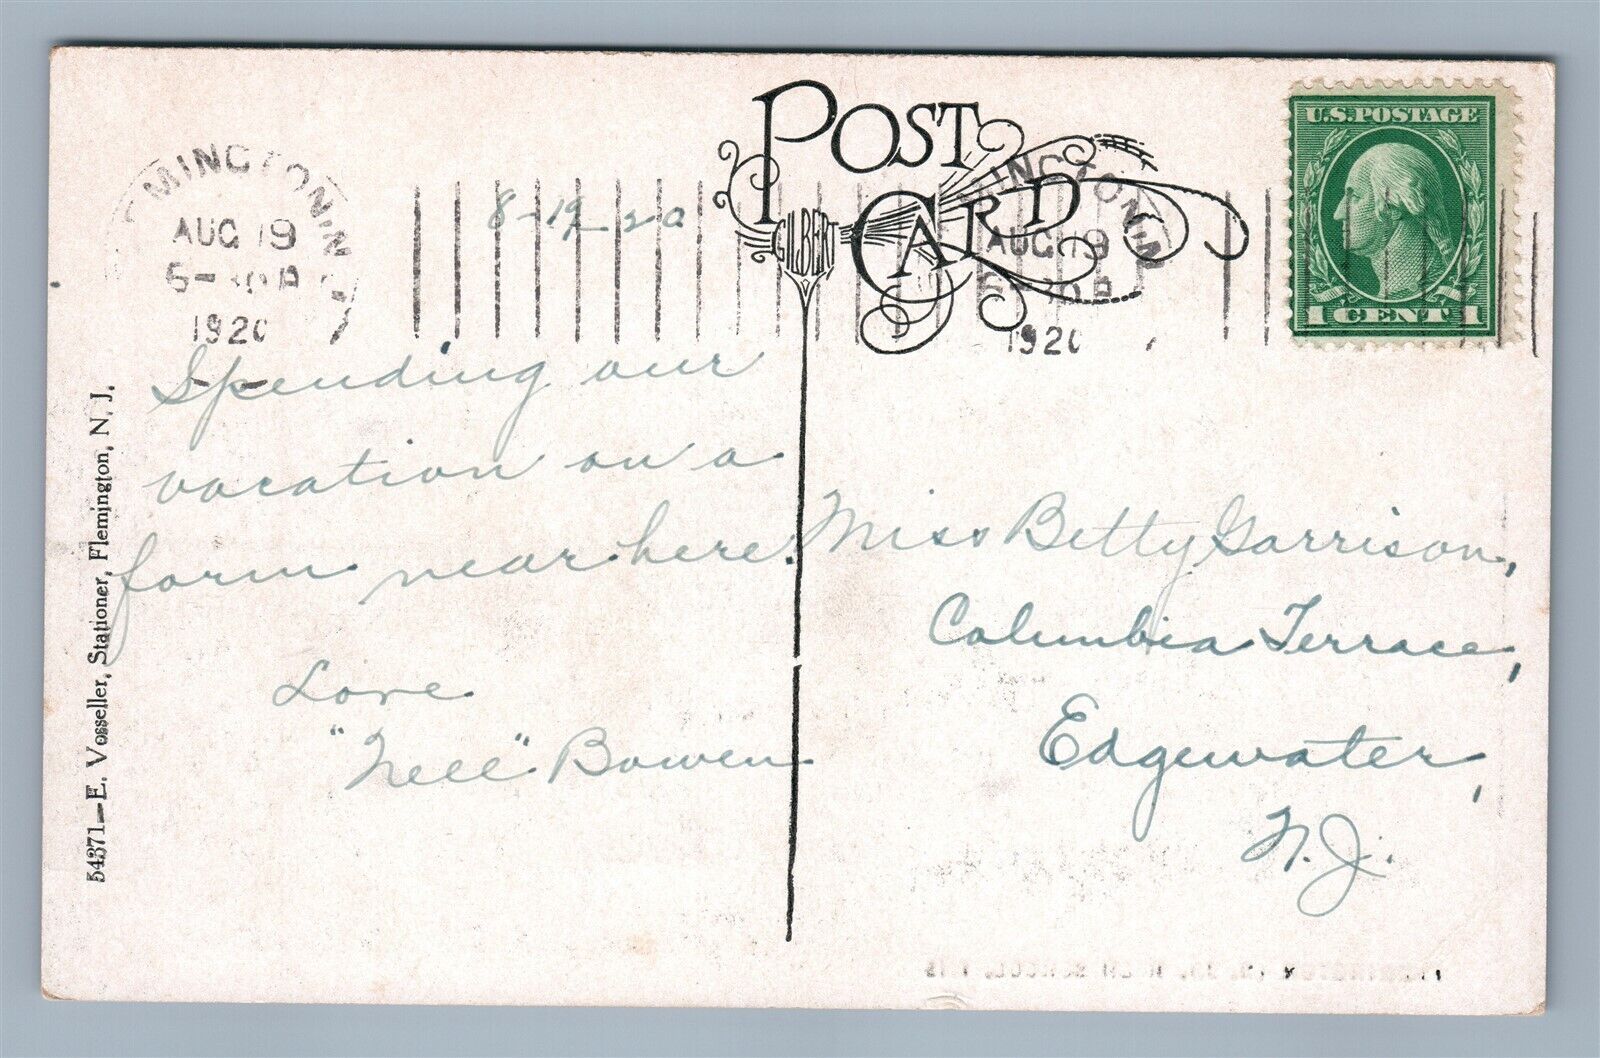 POST
CARD
GILBERT
U.S. POSTAGE
1 CENT 1
MINGTON, N.
AUG 19
1920
INGTON, N
AUG 19
192
8-19-20
Spending our
vacation on a
farm near here.
Love
"Nell" Bowen
Miss Betty Garrison,
Columbia Terrace,
Edgewater,
N.J.
54371—E. Vosseller, Stationer, Flemington, N. J.